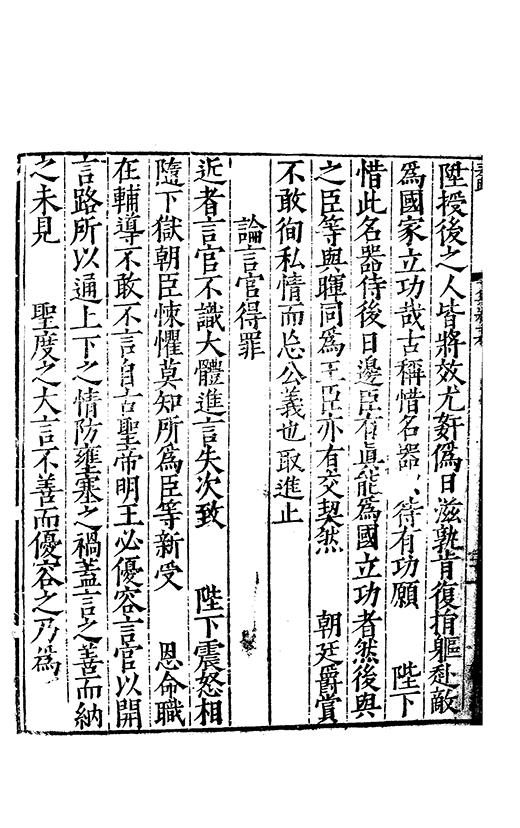 陞授後之人皆將效尤奸僞日滋孰肯復捐軀赴敵
爲國家立功哉古稱惜名器以待有功願　陛下
惜此名器待後日邊臣有眞能爲國立功者然後與
之臣等與暉同爲王臣亦有交契然　朝廷爵賞
不敢徇私情而忘公義也取進止
論言官得罪
近者言官不識大體進言失次致　陛下震怒相
隨下獄朝臣悚懼莫知所爲臣等新受　恩命職
在輔導不敢不言自古聖帝明王必優容言官以開
言路所以通上下之情防壅塞之禍蓋言之善而納
之未見　聖度之大言不善而優容之乃爲